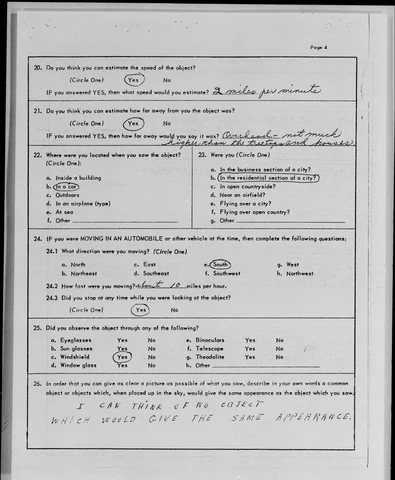 Page 4
20. Do you think you can estimate the speed of the object?
(Circle One) Yes No
IF you answered YES, then what speed would you estimate? 2 miles per minute
21. Do you think you can estimate how far away from you the object was?
(Circle One) Yes No
IF you answered YES, then how far away would you say it was? Overhead - not much
higher than the treetops and houses.
22. Where were you located when you saw the object?
(Circle One):
a. Inside a building
b. In a car
c. Outdoors
d. In an airplane (type)
e. At sea
f. Other
23. Were you (Circle One)
a. In the business section of a city?
b. In the residential section of a city?
c. In open countryside?
d. Near an airfield?
e. Flying over a city?
f. Flying over open country?
g. Other
24. IF you were MOVING IN AN AUTOMOBILE or other vehicle at the time, then complete the following questions:
24.1 What direction were you moving? (Circle One)
a. North c. East e. South g. West
b. Northeast d. Southeast f. Southwest h. Northwest
24.2 How fast were you moving? about 10 miles per hour.
24.3 Did you stop at any time while you were looking at the object?
(Circle One) Yes No
25. Did you observe the object through any of the following?
a. Eyeglasses Yes No e. Binoculars Yes No
b. Sun glasses Yes No f. Telescope Yes No
c. Windshield Yes No g. Theodolite Yes No
d. Window glass Yes No h. Other
26. In order that you can give as clear a picture as possible of what you saw, describe in your own words a common
object or objects which, when placed up in the sky, would give the same appearance as the object which you saw.
I CAN THINK OF NO OBJECT
WHICH WOULD GIVE THE SAME APPEARANCE.